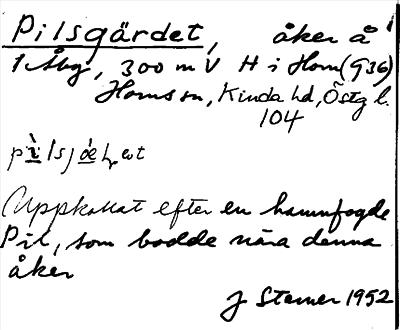 Pilsgärdet, åker å
1 Åby, 300 m V H i Horn (936)
Horns sn, Kinda hd, Östg l.
104
Uppkallat efter en hamnfogde
Pil, som bodde nära denna
åker
J Sterner 1952